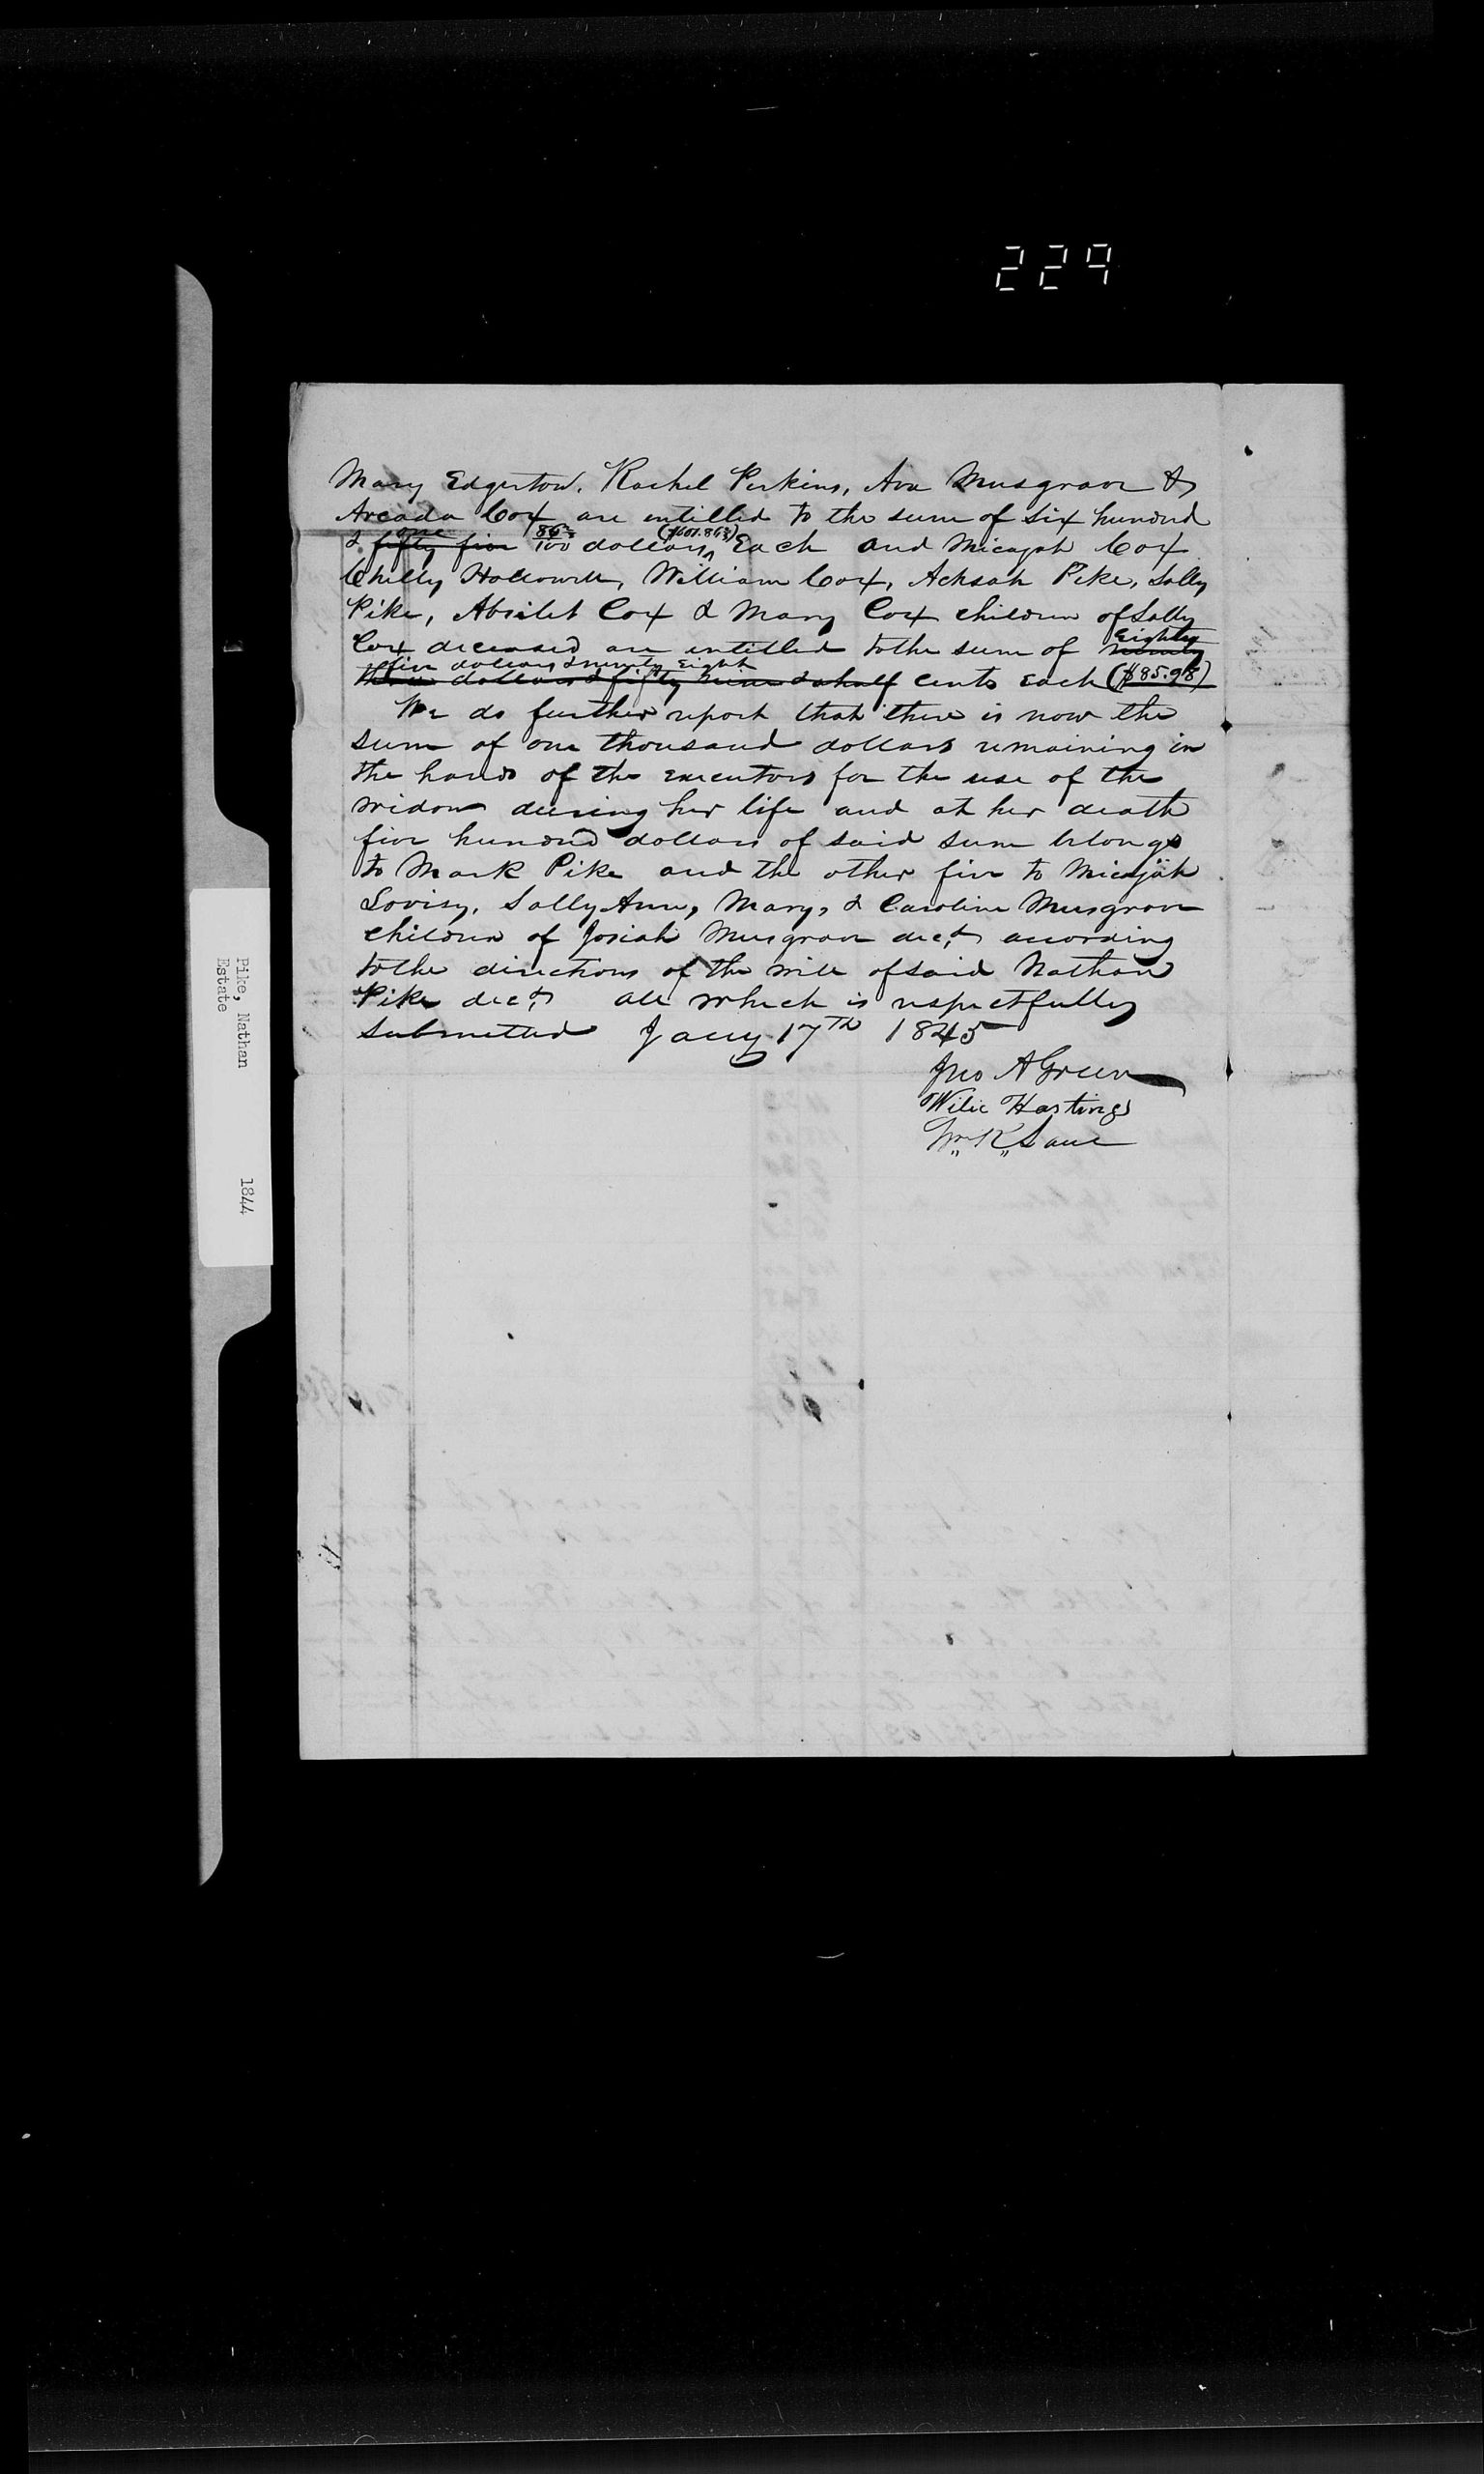 229
Mary Edgerton, Rachel Perkins, Ava Musgrave &
Arcada Cox are entitled to the sum of six hundred
one 86⅔ ($601.86⅔)
& fifty five /100 dollars Each and Micajah Cox
Chelly Hollowell, William Cox, Achsah Pike, Sally
Pike, Absilet Cox & Mary Cox children of Sally
Eighty
Cox deceased are entitled to the sum of ninety
five dollars & ninety Eight
three dollars & fifty nine & a half cents each ($85.98)
We do further report that there is now the
sum of one thousand dollars remaining in
the hands of the executors for the use of the
widow during her life and at her death
five hundred dollars of said sum belongs
to Mark Pike and the other five to Micajah
Lovisy, Sally Ann, Mary, & Caroline Musgrave
children of Josiah Musgrave decd according
to the directions of the will of said Nathan
Pike decd all which is respectfully
submitted Jany 17th 1845
Jno A Green
Wilie Hastings
Wm K Lane
Pike, Nathan 1844
Estate